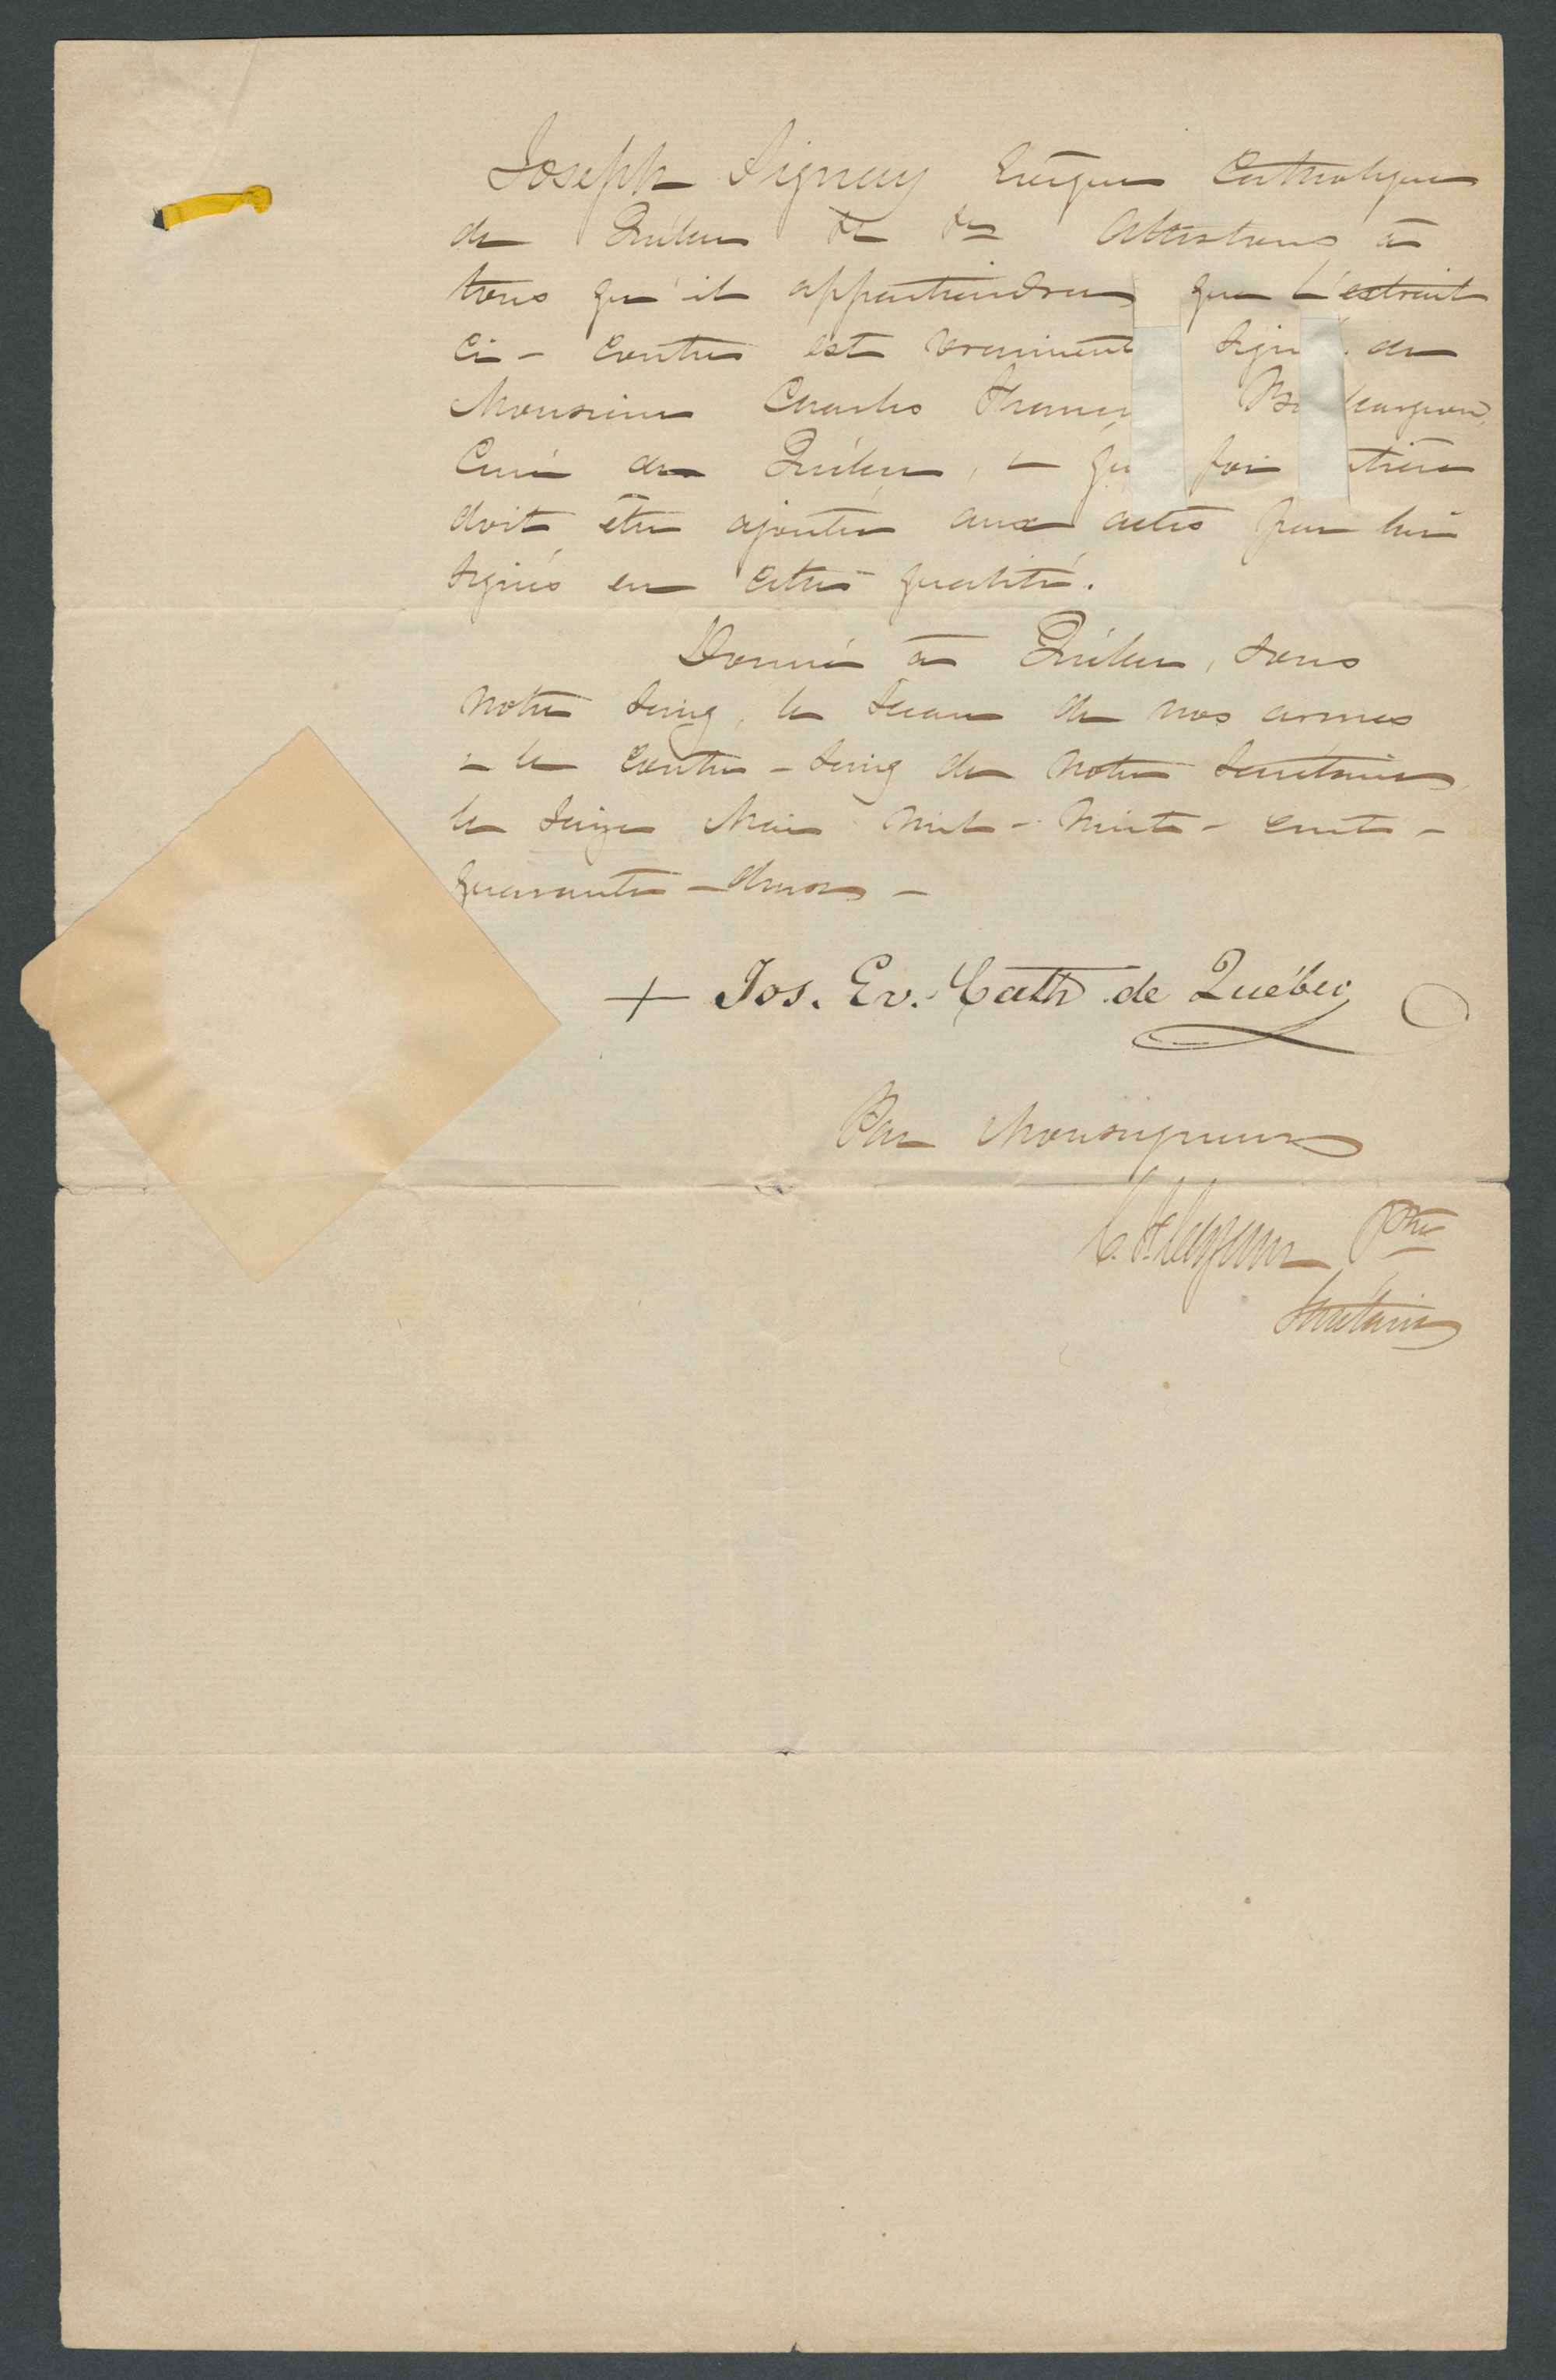 Joseph Signay Evêque Catholique
de Québec &c &c Attestons à
tous qu'il appartiendra que l'extrait
ci-contre est vraiment signé de
Monsieur Charles Franç Ba largeon,
Curé de Québec, & qu foi ntière
doit être ajoutée aux actes par lui
signés en cette qualité.
Donné à Québec, sous
notre seing, le sceau de nos armes
& le contre-seing de notre secrétaire,
le seize Mai mil-huit-cent-
quarante-deux-
+ Jos. Ev. Cath de Québec
Par Monseigneur
C. F. Cazeau Ptre
Secrétaire